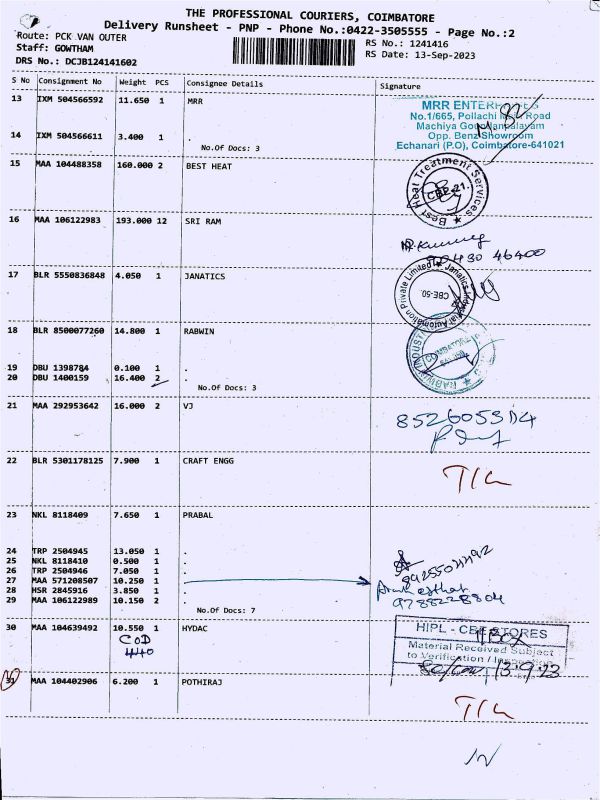 THE PROFESSIONAL COURIERS, COIMBATORE
Delivery Runsheet - PNP - Phone No.:0422-3505555 - Page No.:2
Route: PCK VAN OUTER
RS No.: 1241416
Staff: GOWTHAM
RS Date: 13-Sep-2023
DRS No.: DCJB124141602
S No Consignment No Weight PCS Consignee Details Signature
13 IXM 504566592 11.650 1 MRR
MRR ENTER
No.1/665, Pollachi Road
14 IXM 504566611 3.400 1 .
Opp. Benz Showroom
Echanari (P.O), Coimbatore-641021
No.Of Docs: 3
15 MAA 104488358 160.000 2 BEST HEAT
Best Heat Treatment Services
CBE-21.
16 MAA 106122983 193.000 12 SRI RAM
46400
17 BLR 5550836848 4.050 1 JANATICS
Janatics Industrial Automation Private Limited
CBE-50.
18 BLR 8500077260 14.800 1 RABWIN
RABWIN INDUST
COIMBATORE
19 DBU 1398784 0.100 1 .
20 DBU 1400159 16.400 2 .
No.Of Docs: 3
21 MAA 292953642 16.000 2 VJ
22 BLR 5301178125 7.900 1 CRAFT ENGG
23 NKL 8118409 7.650 1 PRABAL
24 TRP 2504945 13.050 1 .
25 NKL 8118410 0.500 1 .
26 TRP 2504946 7.050 1 .
27 MAA 571208507 10.250 1
28 HSR 2845916 3.850 1 .
29 MAA 106122989 10.150 2 .
9788228804
No.Of Docs: 7
30 MAA 104639492 10.550 1 HYDAC
COD
440
HIPL - CBE STORES
Material Received Subject
to Verification / Inspection
13.9.23
31 MAA 104402906 6.200 1 POTHIRAJ